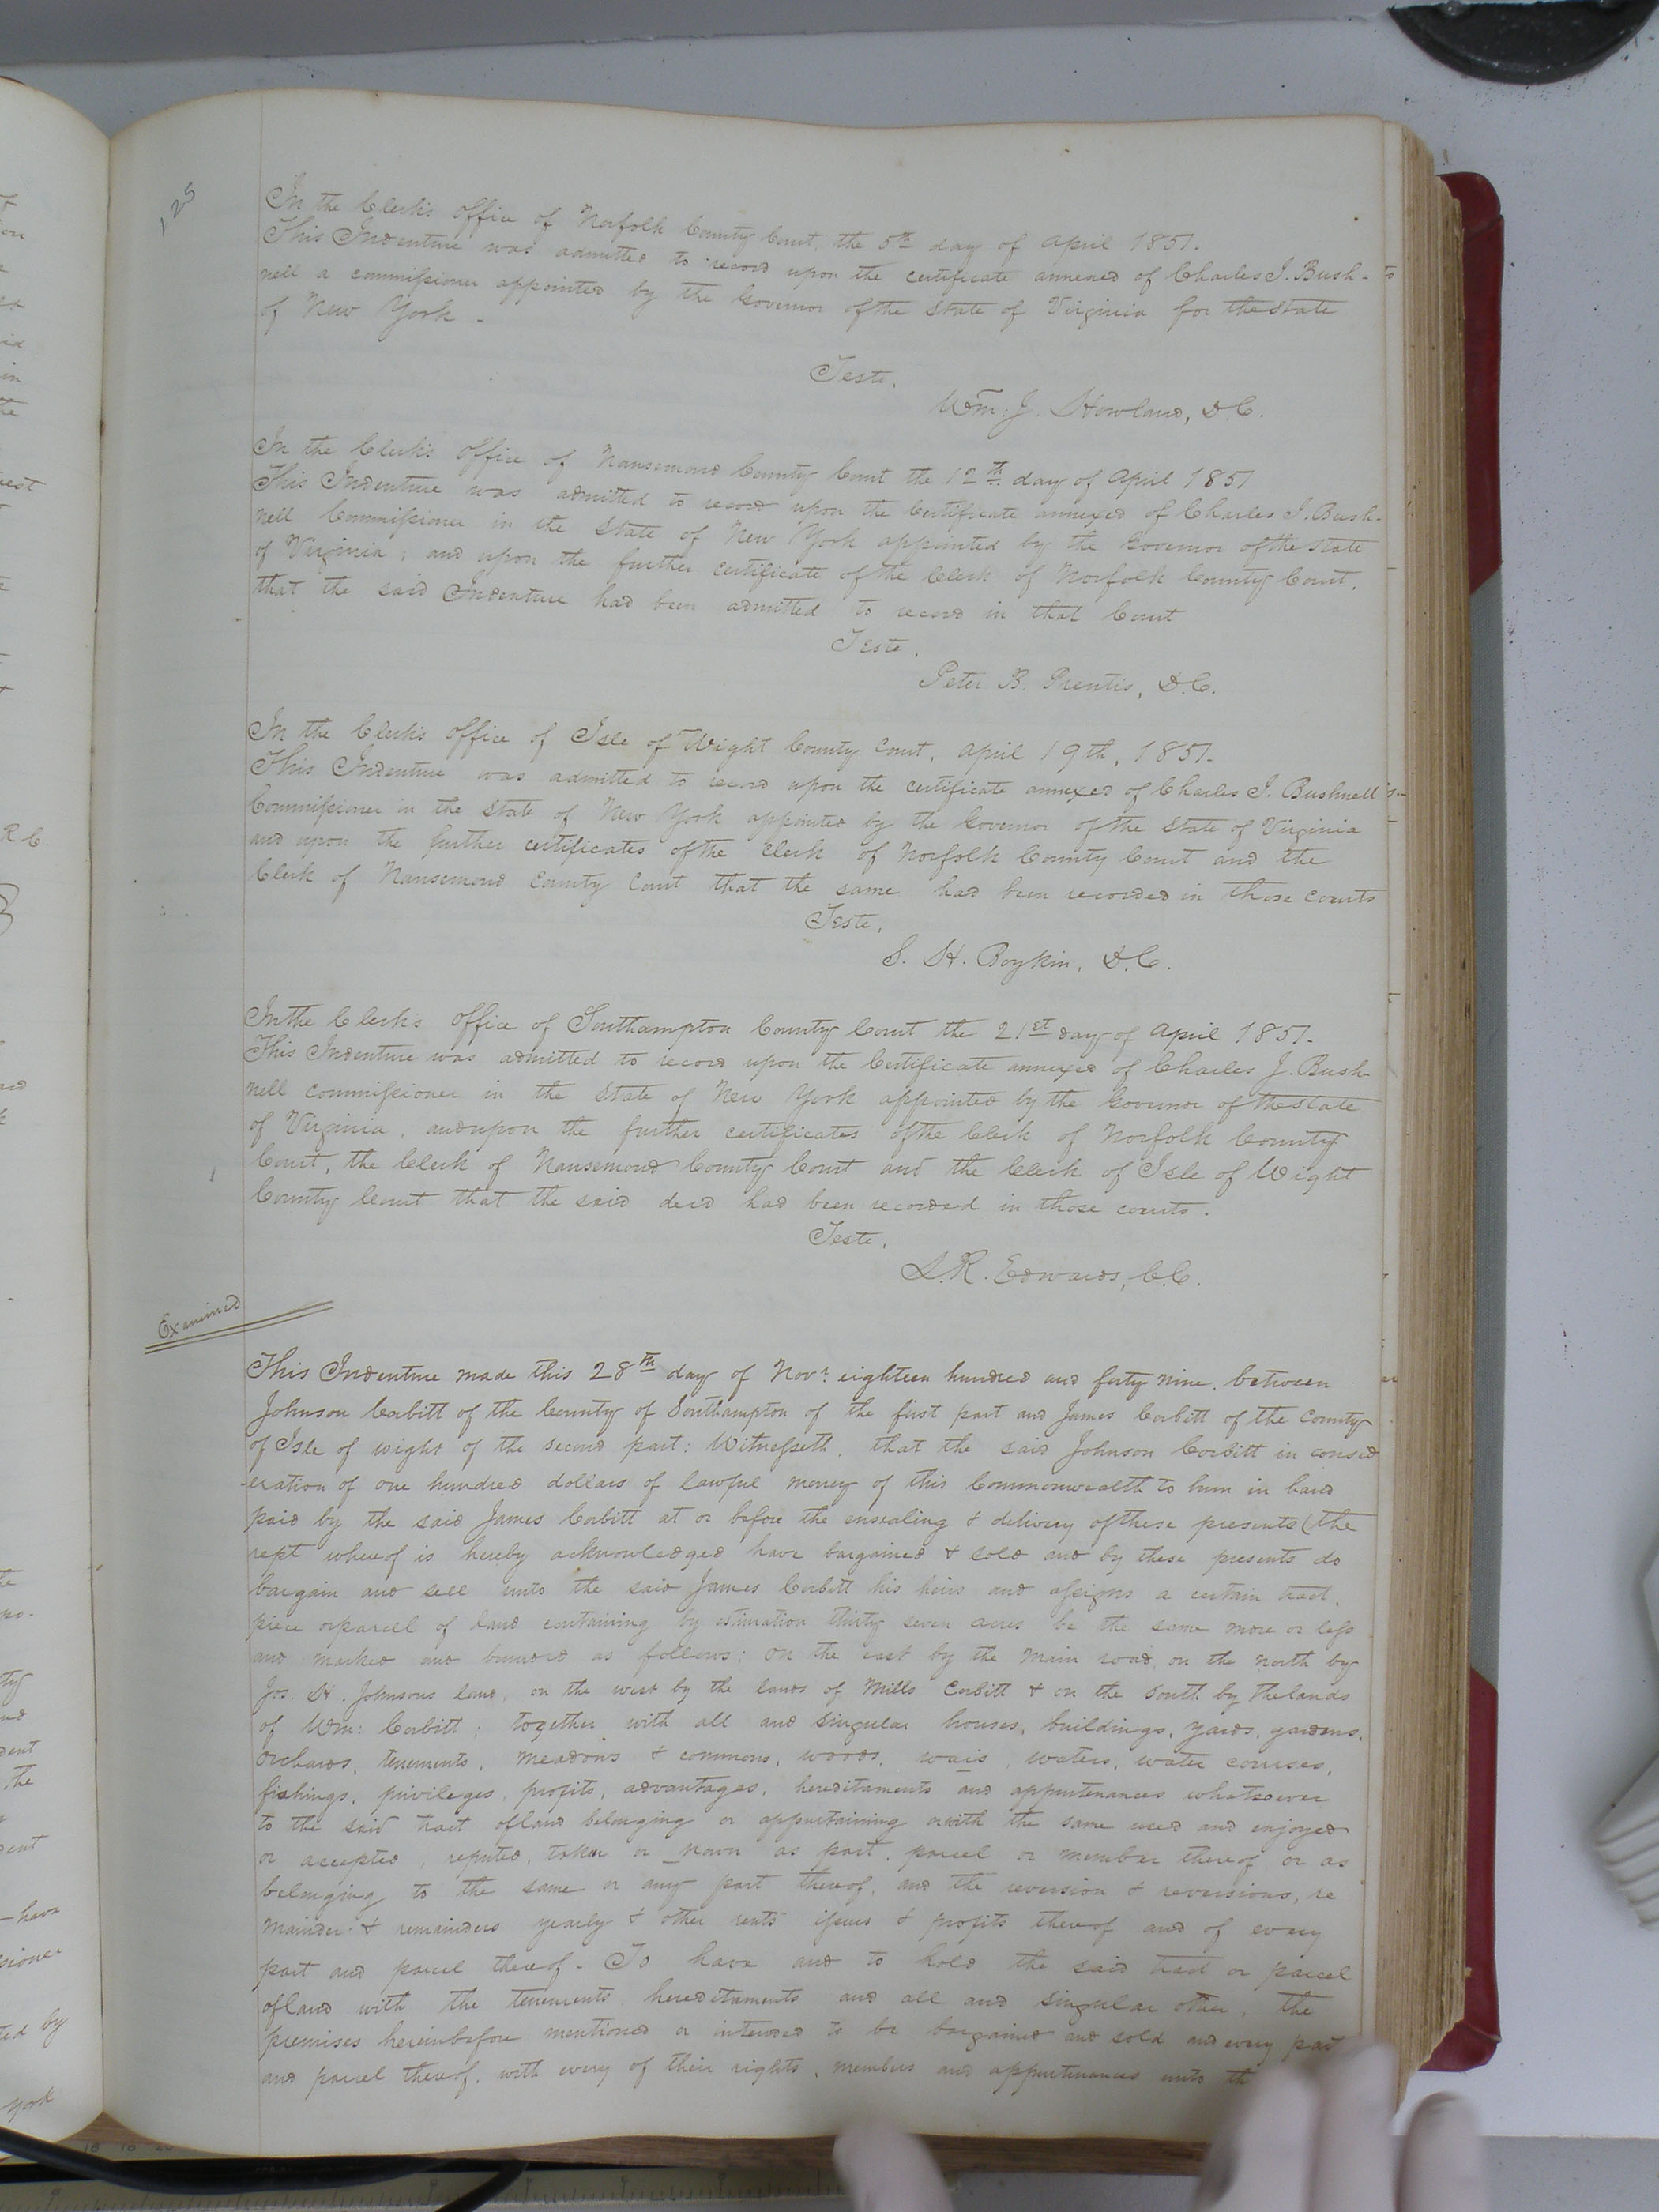 125
In the Clerk's Office of Norfolk County Court, the 5th day of April 1851.
This Indenture was admitted to record upon the certificate annexed of Charles J. Bush-
nell a commissioner appointed by the Governor of the State of Virginia for the State
of New York -
Teste,
Wm: J. Howland, D.C.
In the Clerk's Office of Nansemond County Court the 12th day of April 1851
This Indenture was admitted to record upon the Certificate annexed of Charles J. Bush-
nell Commissioner in the State of New York appointed by the Governor of the State
of Virginia, and upon the further certificate of the Clerk of Norfolk County Court,
that the said Indenture had been admitted to record in that Court
Teste.
Peter B. Prentis, D.C.
In the Clerk's Office of Isle of Wight County Court, April 19th, 1851.
This Indenture was admitted to record upon the certificate annexed of Charles J. Bushnell
Commissioner in the State of New York appointed by the Governor of the State of Virginia
and upon the further certificates of the Clerk of Norfolk County Court and the
Clerk of Nansemond County Court that the same had been recorded in those courts
Teste,
S. H. Boykin, D.C.
In the Clerk's Office of Southampton County Court the 21st day of April 1851.
This Indenture was admitted to record upon the Certificate annexed of Charles J. Bush-
nell commissioner in the State of New York appointed by the Governor of the State
of Virginia, and upon the further certificates of the Clerk of Norfolk County
Court, the Clerk of Nansemond County Court and the Clerk of Isle of Wight
County Court that the said deed had been recorded in those courts.
Teste,
L.R. Edwards, C.C.
Examined
This Indenture made this 28th day of Novr. eighteen hundred and forty nine, between
Johnson Corbitt of the County of Southampton of the first part and James Corbitt of the County
of Isle of wight of the second part: Witnesseth, that the said Johnson Corbitt in consid
eration of one hundred dollars of lawful money of this Commonwealth to him in hand
paid by the said James Corbitt at or before the ensealing & delivery of these presents (the
rept whereof is hereby acknowledged have bargained & sold and by these presents do
bargain and sell unto the said James Corbitt his heirs and assigns a certain tract,
piece or parcel of land containing by estimation thirty seven acres be the same more or less
and marked and bounded as follows; On the east by the Main road, on the north by
Jos. H. Johnsons land, on the west by the lands of Mills Corbitt & on the South by the lands
of Wm: Corbitt; together with all and singular houses, buildings, yards, gardens,
Orchards, tenements, meadows & commons, woods, wais, waters, water courses,
fishings, privileges, profits, advantages, hereditaments and appurtenances whatsoever
to the said tract of land belonging or appertaining or with the same used and enjoyed
or accepted, reputed, taken or nown as part, parcel or member thereof, or as
belonging to the same or any part thereof, and the reversion & reversions, re
mainder & remainders yearly & other rents issues & profits thereof and of every
part and parcel thereof - To have and to hold the said tract or parcel
of land with the tenements, hereditaments and all and singular other, the
premises hereinbefore mentioned or intended to be bargained and sold and every part
and parcel thereof, with every of their rights, members and appurtenances unto th